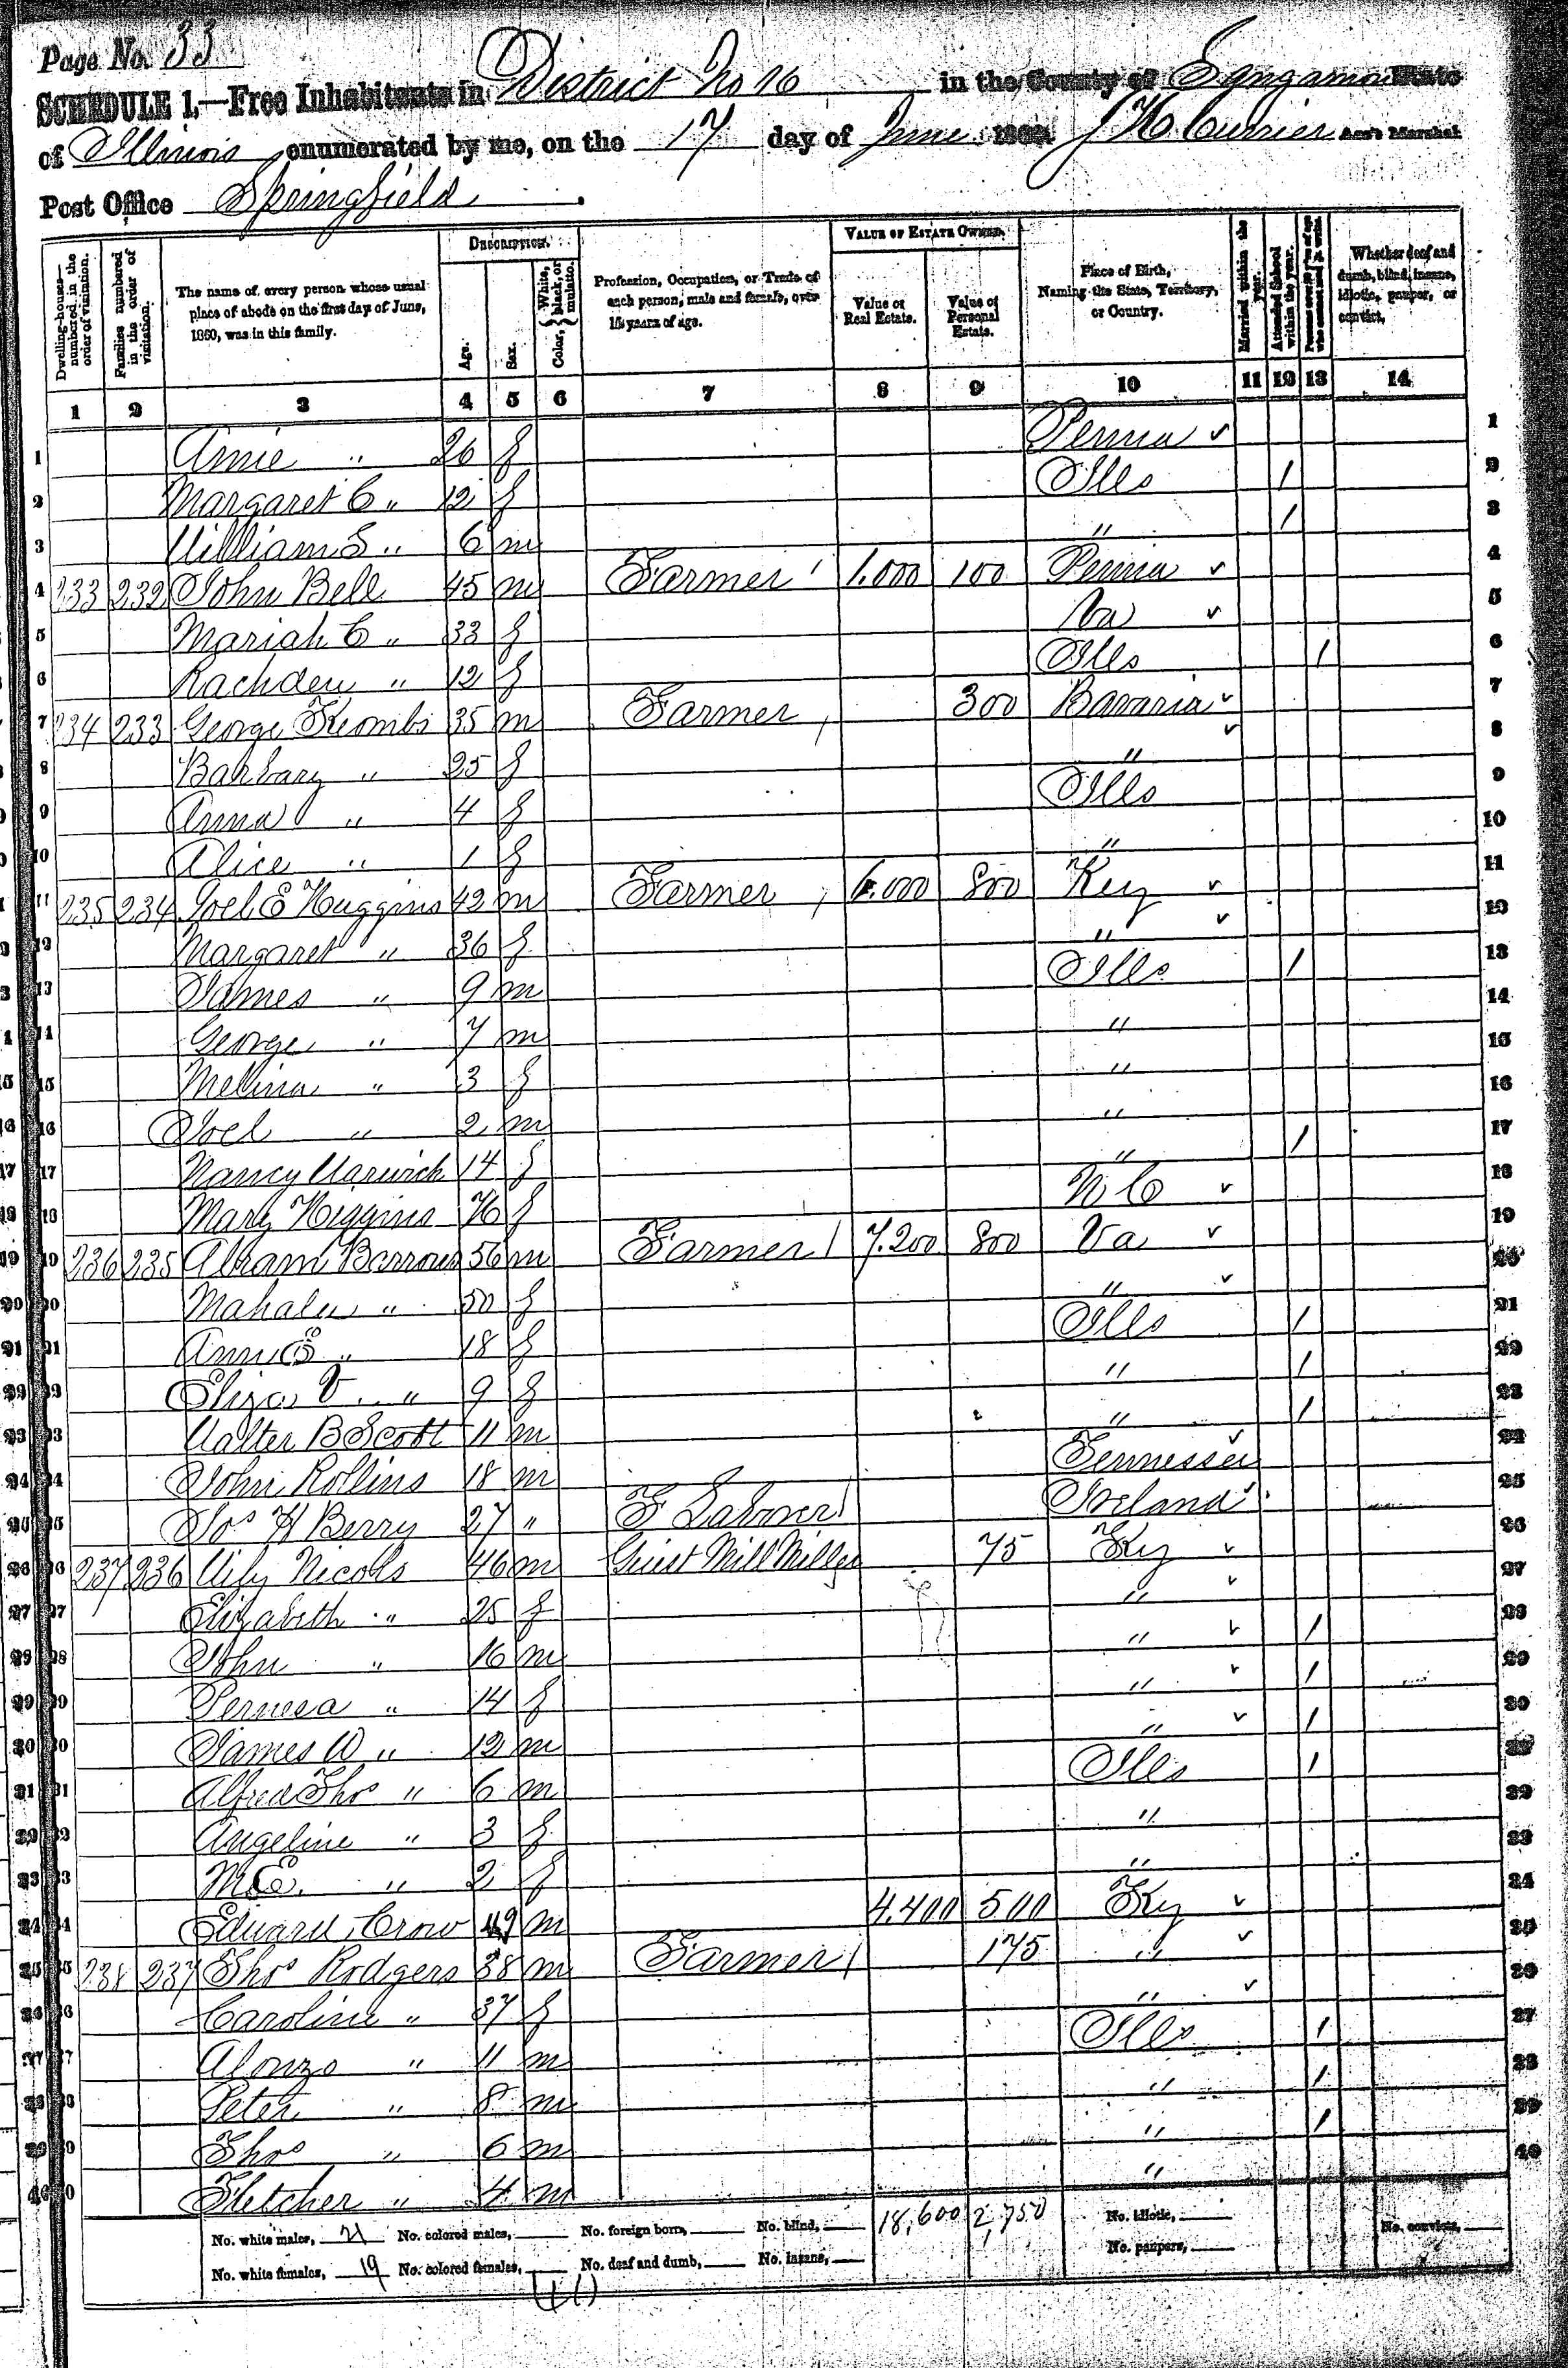 Page No. 33
SCHEDULE 1.—Free Inhabitants in District No 16 in the County of Sangamon State
of Illinois enumerated by me, on the 17 day of June 1860. J H Currier Ass't Marshal
Post Office Springfield.
Dwelling-houses—numbered in the order of visitation.
Families numbered in the order of visitation.
The name of every person whose usual place of abode on the first day of June, 1860, was in this family.
Description.
Age.
Sex.
Color, { White, black, or mulatto.
Profession, Occupation, or Trade of each person, male and female, over 15 years of age.
Value of Estate Owned.
Value of Real Estate.
Value of Personal Estate.
Place of Birth, Naming the State, Territory, or Country.
Married within the year.
Attended School within the year.
Whether deaf and dumb, blind, insane, idiotic, pauper, or convict.
1 2 3 4 5 6 7 8 9 10 11 12 13 14
1 Amie " 26 f Penna ✓ 1
2 Margaret C " 12 f Ills / 2
3 William S " 6 m " / 3
4 233 232 John Bell 45 m Farmer 1.000 100 Penna ✓ 4
5 Mariah C " 33 f Va ✓ 5
6 " 12 f Ills / 6
7 234 233 George Keombs 35 m Farmer 300 Bavaria ✓ 7
8 Barbary " 25 f " ✓ 8
9 Anna " 4 f Ills 9
10 Alice " 1 f " 10
11 235 234 Joel E Huggins 42 m Farmer 6.000 800 Key ✓ 11
12 Margaret " 36 f " ✓ 12
13 James " 9 m Ills / 13
14 George " 7 m " 14
15 Mellina " 3 f " 15
16 Joel " 2 m " 16
17 Nancy Warwick 14 f " / 17
18 Mary Higgins 76 f N C ✓ 18
19 236 235 Abram Barrows 56 m Farmer 7.200 800 Va ✓ 19
20 Mahala " 50 f " ✓ 20
21 Ann E " 18 f Ills / 21
22 Eliza V. " 9 f " / 22
23 Walter B Scott 11 m " / 23
24 John Rollins 18 m Tennessee ✓ 24
25 Jos H Berry 27 " F Labourer Ireland 25
26 237 236 Wily Nicols 46 m Grist Mill Miller 75 Ky ✓ 26
27 Elizabeth " 25 f " ✓ 27
28 John " 16 m " ✓ / 28
29 " 14 f " ✓ / 29
30 James W " 12 m " ✓ / 30
31 Alfred Thos " 6 m Ills / 31
32 Angeline " 3 f " 32
33 M E. " 2 f " 33
34 Edward Crow 49 m 4.400 500 Ky ✓ 34
35 238 237 Thos Rodgers 38 m Farmer 175 " ✓ 35
36 Caroline " 37 f " ✓ 36
37 Alonzo " 11 m Ills / 37
38 Peter " 8 m " / 38
39 Thos " 6 m " / 39
40 Fletcher " 4 m " 40
No. white males, 21 No. colored males, No. foreign born, No. blind, 18,600 2,750 No. idiotic, No. convicts,
No. white females, 19 No. colored females, No. deaf and dumb, No. insane, No. paupers,
40